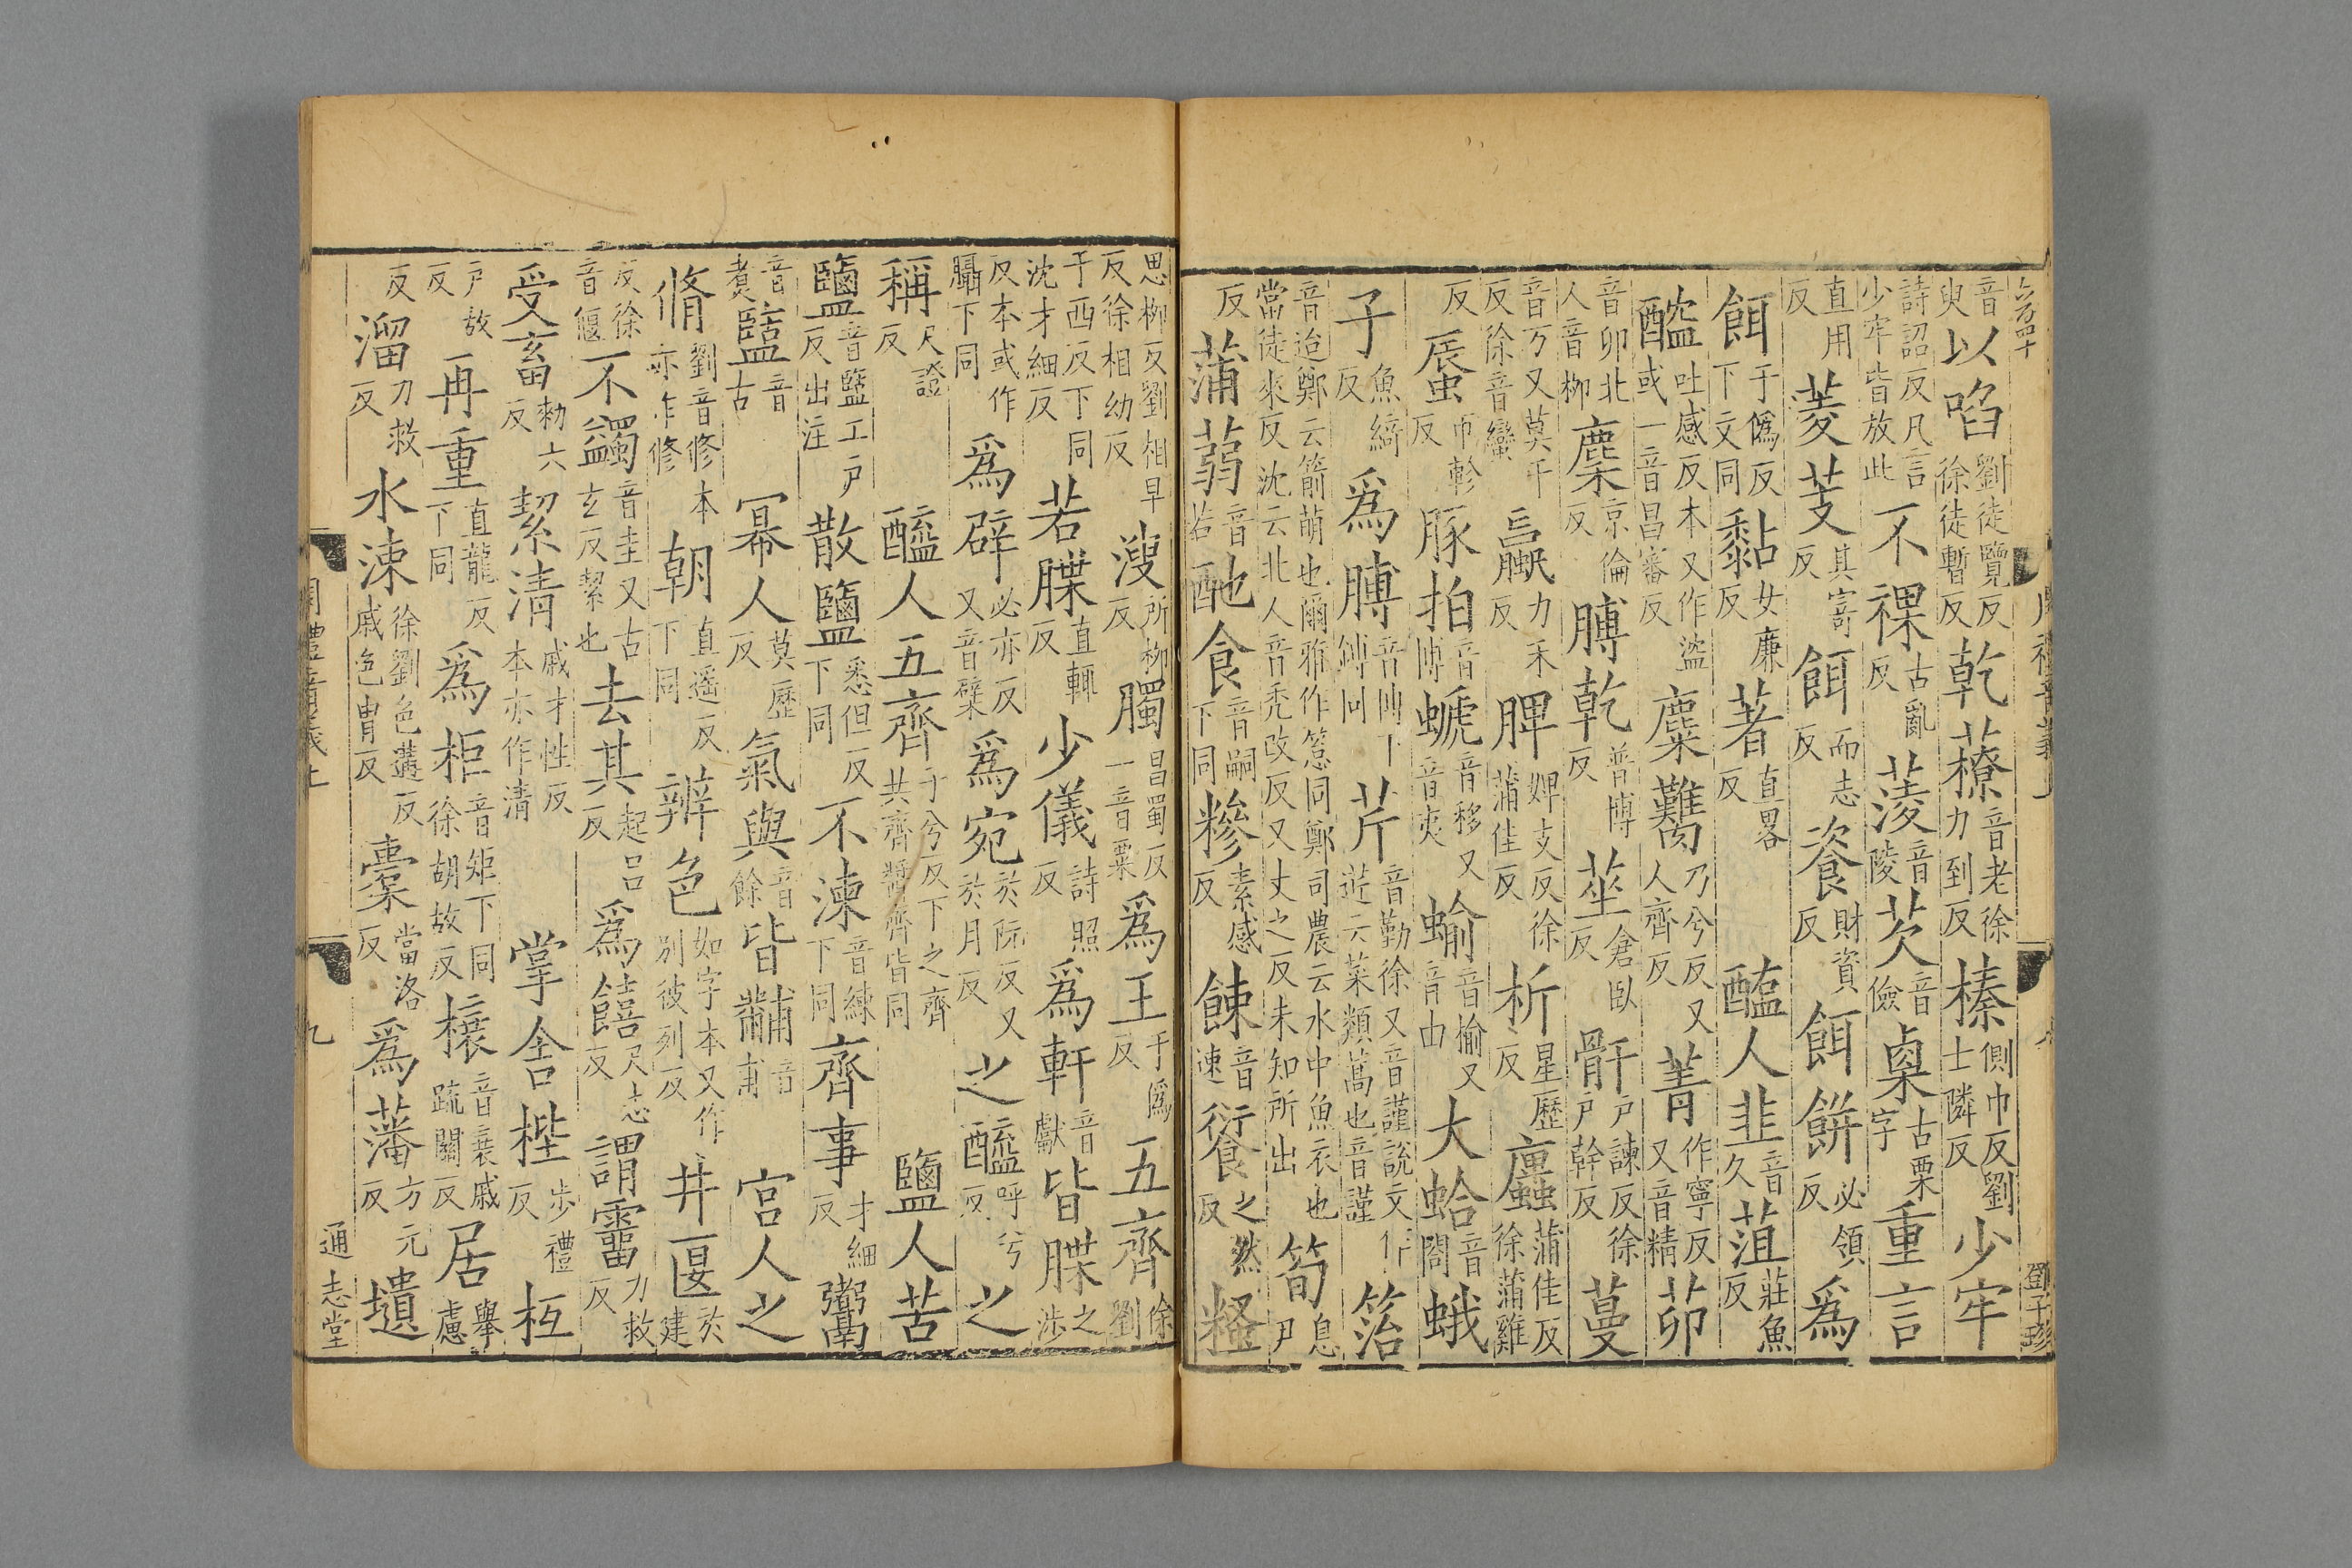 音臾以啗劉徒覽反徐徒暫反乾䕩音老徐力到反榛側巾反劉士隣反少牢
詩詔反凡言少牢皆放此不祼古亂反菱音陵芡音儉㮚古栗字重言
直用反菱芰其寄反餌而志反餈財資反餌餅必領反為
餌于僞反下文同黏女廉反著直畧反醓人韭音久菹莊魚反
醓吐感反本又作盜或一音昌審反麋臡乃兮反又人齊反菁作寧反又音精茆
音卯北人音柳麇京倫反膊乾普博反莝倉臥反骭戶諫反徐戶幹反蔓
音万又莫干反徐音蠻蠃力禾反脾婢支反徐蒲佳反析星歷反蠯蒲佳反徐蒲雞
反蜃巿軫反豚拍音博蜁音移又音夾蝓音榆又音由大蛤音閤蛾
子魚綺反為膊音博下芹音勤徐又音謹說文作菦云菜類蒿也音謹箈
音迨鄭云箭萌也爾雅作䈚同鄭司農云水中魚衣也當徒來反沈云北人音禿改反又丈之反未知所出筍息尹
反蒲蒻音若酏食音嗣下同糝素感反餗音速䭈之然反糔
思柳反劉相早反徐相幼反溲所柳反臅昌蜀反一音粟為王于僞反五齊徐劉
子西反下同沈才細反若牒直輒反少儀詩照反為軒音獻皆牒之涉
反本或作䐑下同為辟必亦反又音檗為宛於阮反又於月反之醯呼兮反之
稱尺證反醯人五齊子兮反下之齊共齊醬齊皆同鹽人苦
鹽音盬工戶反出注散鹽悉但反下同不湅音練下同齊事才細反鬻
音煑盬音古冪人莫歷反氣與音餘皆黼音甫宮人之
脩劉音修本亦作修朝直遥反下同辨色如字本又作別彼列反井匽於建
反徐音偃不蠲音圭又古玄反絜也去其起呂反為饎尺志反謂霤力救反
受畜勑六反絜清戚才性反本亦作清掌舍梐步禮反枑
戶故反再重直龍反下同為柜音矩下同徐胡故反欀音襄戚䟽關反居舉慮
反溜力救反水涑徐劉色遘反戚色胄反橐當洛反為藩方元反壝
周禮音義上
九
通志堂
鄧子珍